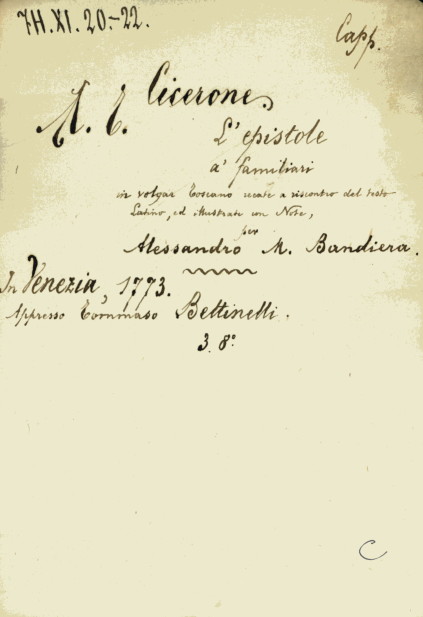 7H.XI.20.-22.
Capp.
M. T. Cicerone.
L'epistole
a' familiari
in volgar Toscano recate a riscontro del testo
Latino, ed illustrate con Note,
per
Alessandro M. Bandiera.
In Venezia, 1773.
Appresso Tommaso Bettinelli.
3. 8º
C